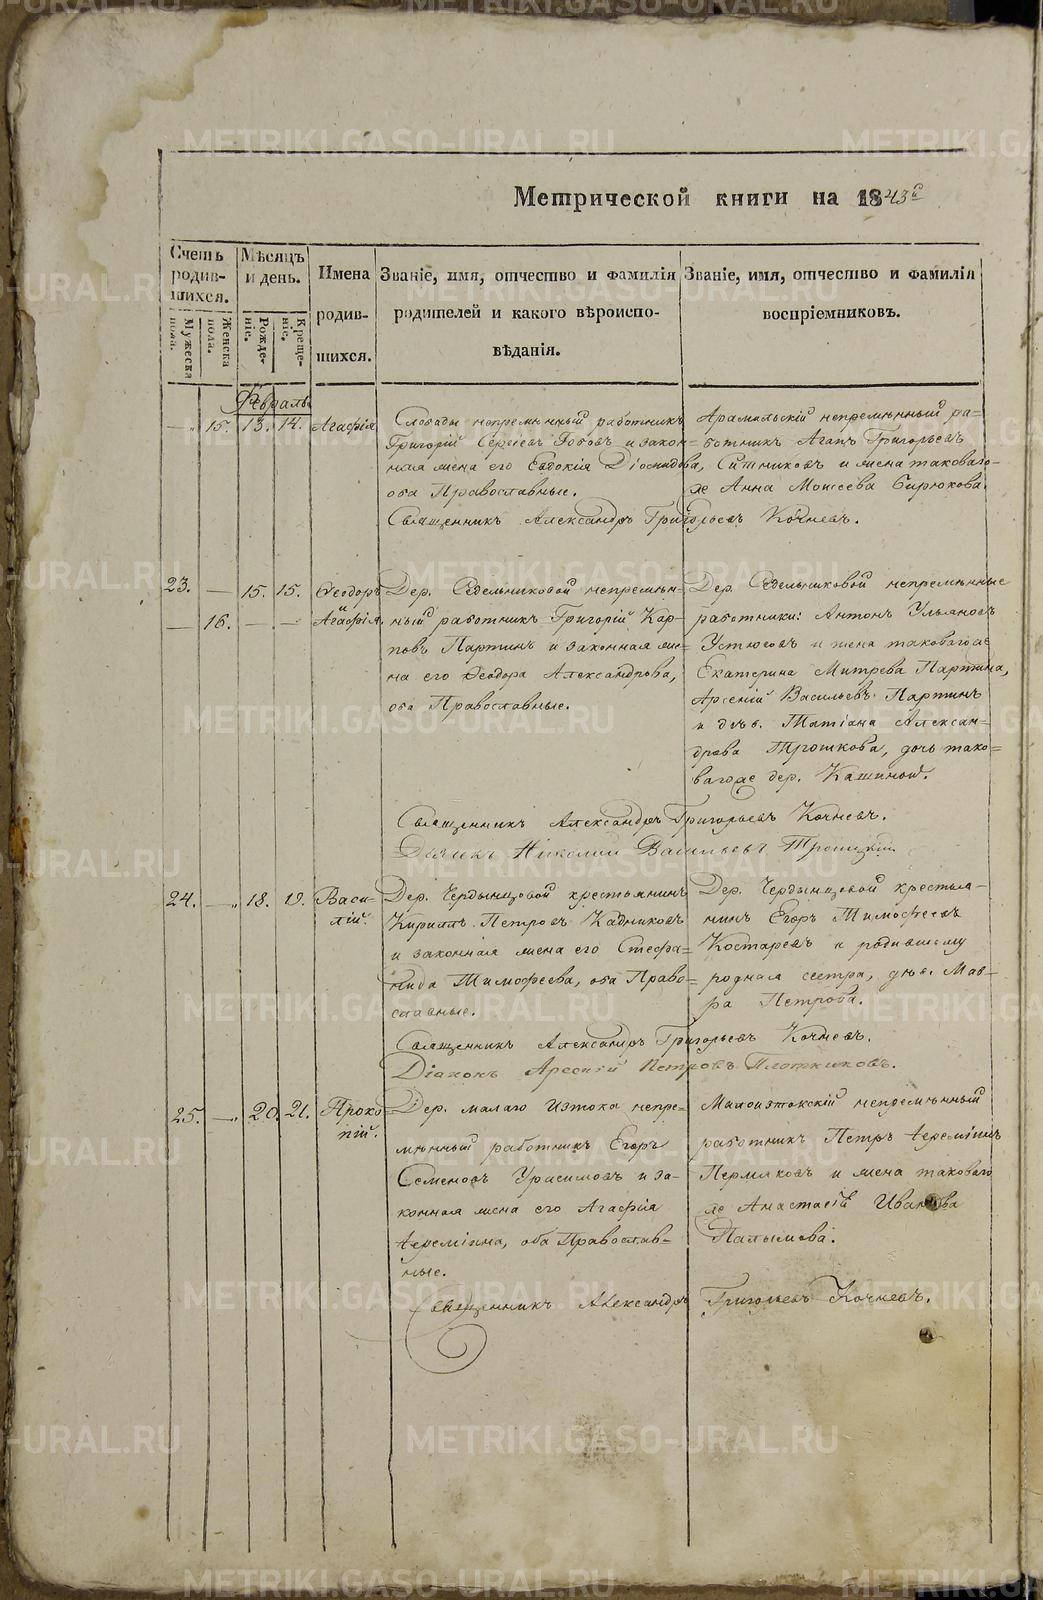 Метрической книги на 1843й
Счетъ родившихся.
Мужеска пола.
Женска пола.
Мѣсяцъ и день.
Рожденіе.
Крещеніе.
Имена родившихся.
Званіе, имя, отчество и фамилія
родителей и какого вѣроиспо-
вѣданія.
Званіе, имя, отчество и фамилія
воспріемниковъ.
Февраль
— 15. 13. 14. Агафія
Слободы непремѣнный работникъ
Григорій Сергѣевъ и закон-
ная жена его Евдокія Діомидова,
оба Православные.
Арамильскій непремѣнный ра-
ботникъ Агапъ Григорьевъ
Ситниковъ и жена таковаго
же Анна Моисеева Бирюкова.
Священникъ Александръ Григорьевъ Кочневъ.
23. — 15. 15. Ѳеодоръ
и
— 16. — — Агафія.
Дер. Седельниковой непремѣн-
ный работникъ Григорій Кар-
повъ Партинъ и законная же-
на его Ѳеодора Александрова,
оба Православные.
Дер. Седельниковой непремѣнные
работники: Антонъ Ульяновъ
Устюговъ и жена таковагоже
Екатерина Митрева Партина,
Арсеній Васильевъ Партинъ
и дѣв. Татіана Алексан-
дрова Трошкова, дочь тако-
вагоже дер. Кашиной.
Священникъ Александръ Григорьевъ Кочневъ.
Дьячекъ Николай Васильевъ Троицкій
24. — 18. 19. Васи-
лій.
Дер. Чердынцовой крестьянинъ
Кириллъ Петровъ Кадниковъ
и законная жена его Стефа-
нида Тимофеева, оба Право-
славные.
Дер. Чердынцовой крестья-
нинъ Егоръ Тимофеевъ
Костаревъ и родившему
родная сестра, дѣв. Мав-
ра Петрова.
Священникъ Александръ Григорьевъ Кочневъ.
Діаконъ Арсеній Петровъ Плотниковъ.
25. — 20. 21. Проко-
пій.
Дер. малаго Истока непре-
мѣнный работникъ Егоръ
Семеновъ Урасимовъ и за-
конная жена его Агафія
Іереміина, оба Православ-
ные.
Малоистокскій непремѣнный
работникъ Петръ Іереміинъ
Пермяковъ и жена таковаго
же Анастасія Иванова
Палымова.
Священникъ Александръ Григорьевъ Кочневъ.
METRIKI.GASO-URAL.RU